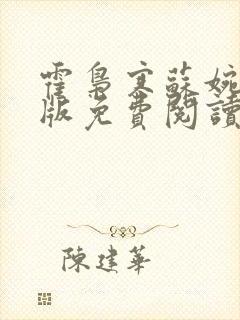 霍梟寒蘇婉
版免費閱讀
陳建華